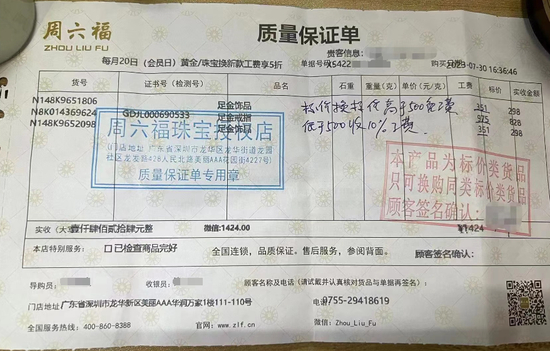 周六福
ZHOU LIU FU
质量保证单
贵客信息:
每月20日(会员日)黄金/珠宝换新款工费享5折
单据号码 X5422
购买 23-07-30 16:36:46
货号 证书号(检测号) 品名 石重 重量(克) 单价(元/克) 工费 实收
N148K9651806 足金饰品 351 298
N8K014369624 GDJL000690533 足金戒指 975 828
N148K9652098 足金饰品 351 298
按价换按低高于500免工费
低于500收10%工费
周六福珠宝授权店
门店地址:广东省深圳市龙华区龙华街道龙园
社区龙发路428人民北路美丽AAA花园街4227号
质量保证单专用章
本产品为标价类货品
只可换购同类标价类货品
顾客签名确认:
实收(大写) 壹仟肆佰贰拾肆元整 微信:1424.00 ¥1424
本店特别服务: 口已检查商品完好 全国连锁,品质保证。售后服务,参阅背面。 签名确认:
导购员: 收银员: 顾客名称及电话(请试戴并认真核对货品与单据再签名)
门店地址:广东省深圳市龙华新区美丽AAA华润万家1楼111-110号 0755-29418619
全国服务热线:400-860-8388 官网:www.zlf.cn 微信:Zhou_Liu_Fu